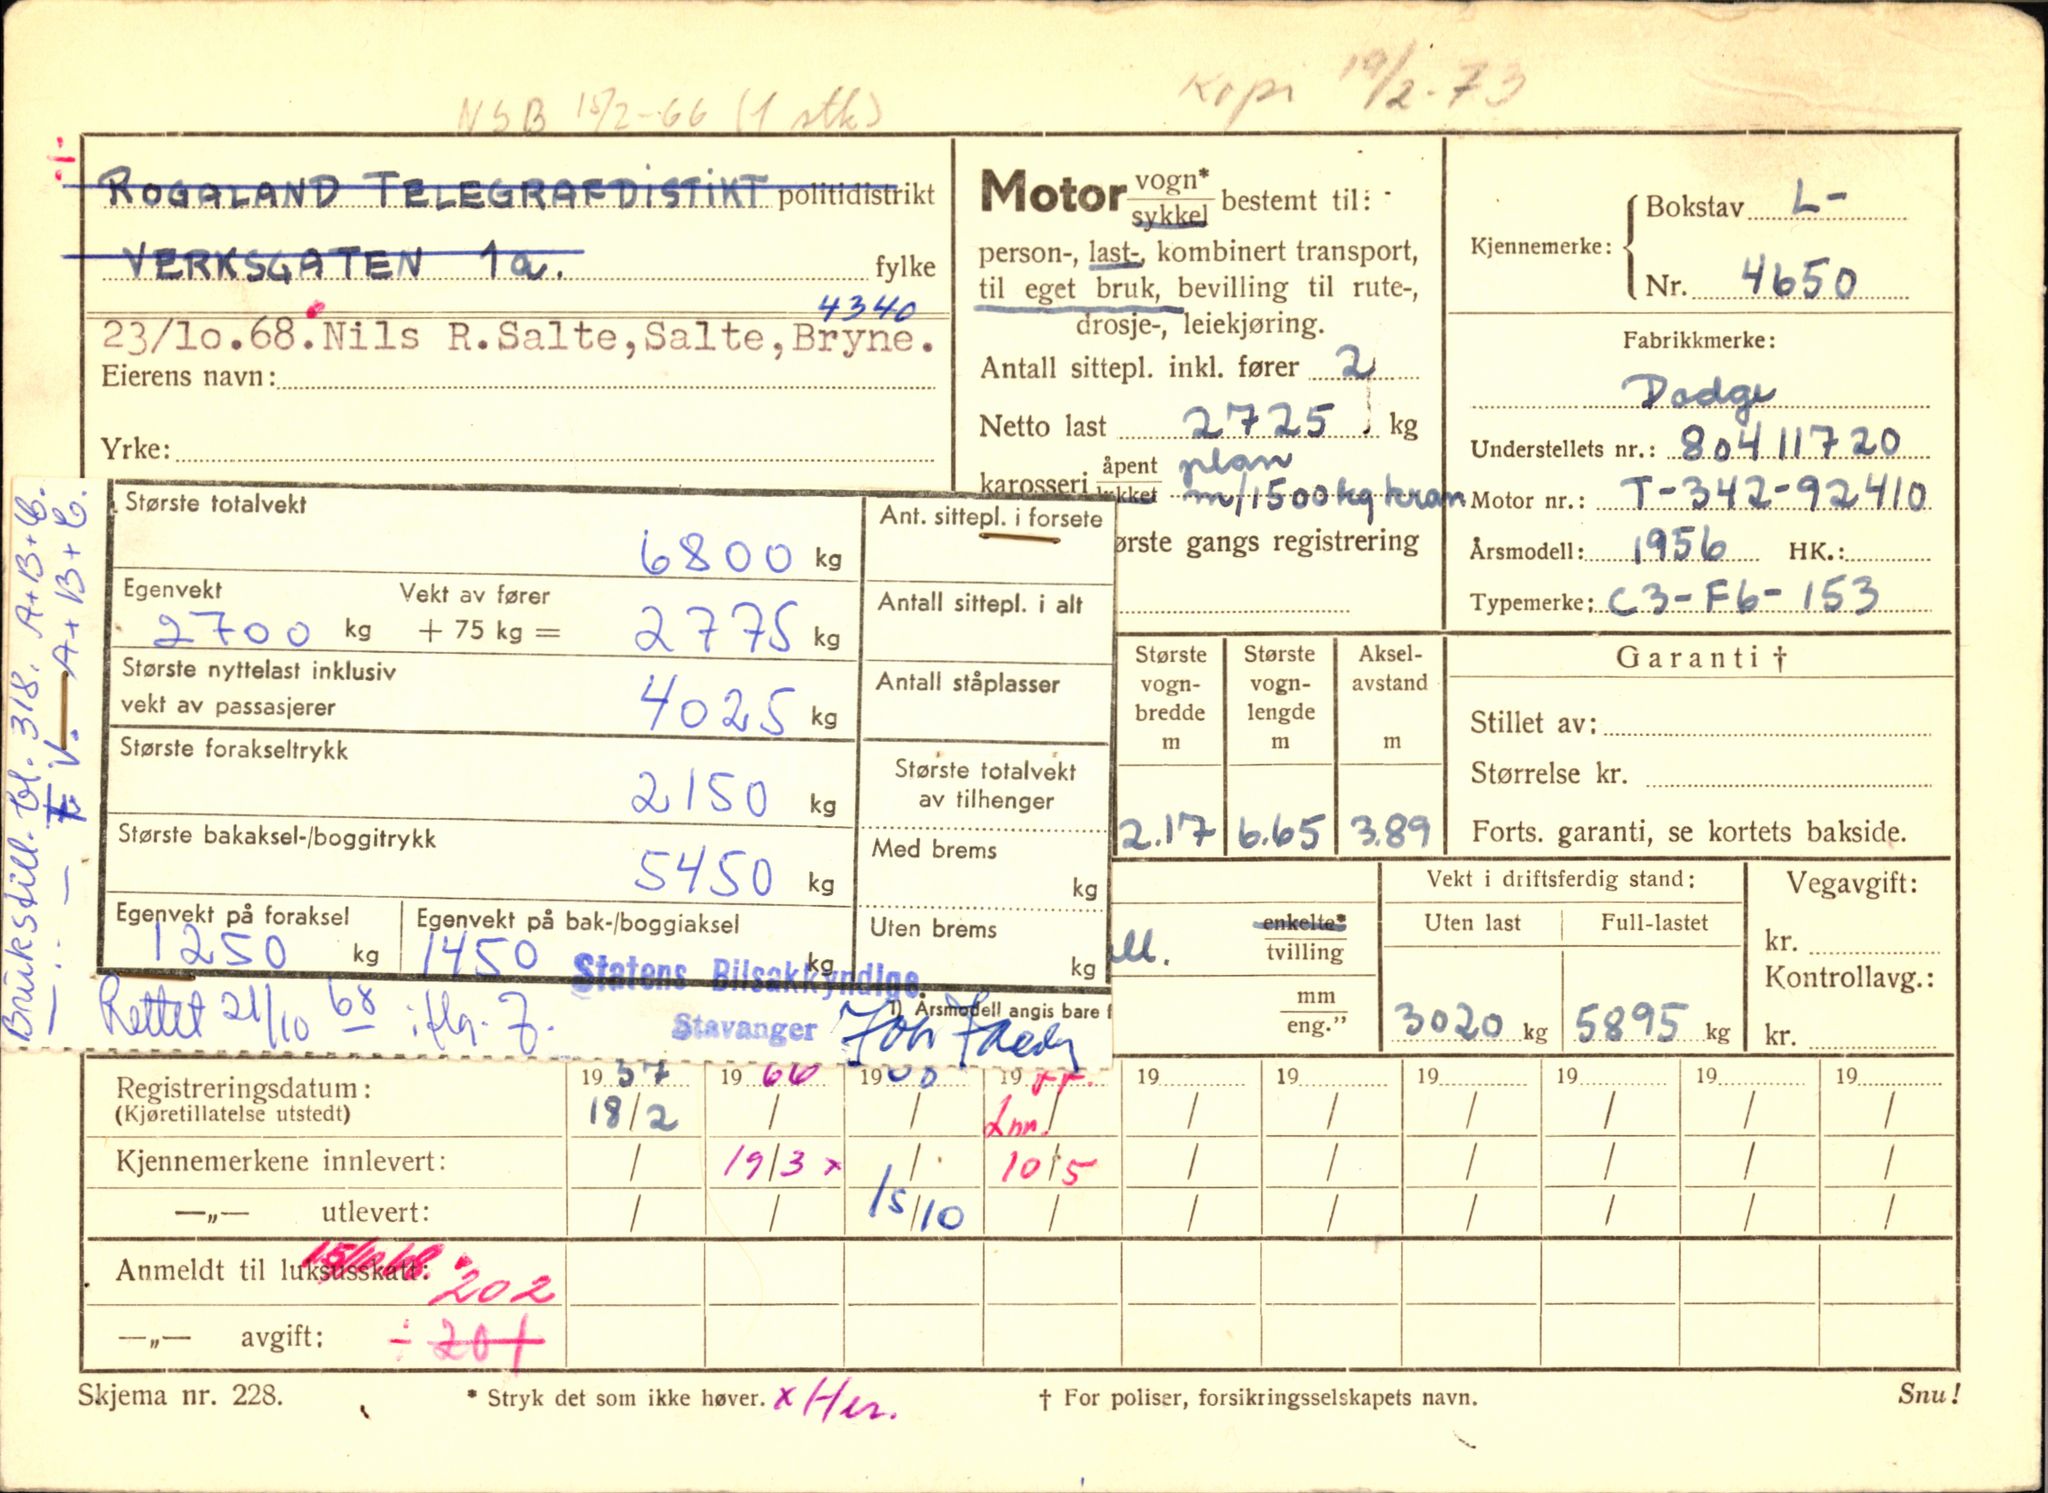 NSB 15/2-66 (1 stk)
Kopi 19/2-73
ROGALAND TELEGRAFDISTIKT politidistrikt
VERKSGATEN 1a. fylke
4340
23/lo.68. Nils R.Salte, Salte, Bryne.
Eierens navn:
Yrke:
Motor vogn* sykkel bestemt til:
person-, last-, kombinert transport,
til eget bruk, bevilling til rute-,
drosje-, leiekjøring.
Antall sittepl. inkl. fører 2
Netto last 2725 kg
karosseri åpent plan
m/1500 kg kran
ørste gangs registrering
Kjennemerke: Bokstav L-
Nr. 4650
Fabrikkmerke:
Dodge
Understellets nr.: 80411720
Motor nr.: T-342-92410
Årsmodell: 1956 HK.:
Typemerke: C3-F6-153
Garanti †
Stillet av:
Størrelse kr.
Forts. garanti, se kortets bakside.
Største vogn-bredde m 2.17
Største vogn-lengde m 6.65
Aksel-avstand m 3.89
Brukstill. bl. 318. A+B+C.
A+B+C.
Største totalvekt 6800 kg
Egenvekt 2700 kg
Vekt av fører + 75 kg = 2775 kg
Største nyttelast inklusiv
vekt av passasjerer 4025 kg
Største forakseltrykk 2150 kg
Største bakaksel-/boggitrykk 5450 kg
Egenvekt på foraksel 1250 kg
Egenvekt på bak-/boggiaksel 1450 kg
Ant. sittepl. i forsete
Antall sittepl. i alt
Antall ståplasser
Største totalvekt
av tilhenger
Med brems kg
Uten brems kg
Statens Bilsakkyndige
Stavanger
1) Årsmodell angis bare f
Rettet 21/10 68 iflg. 7.
ll. enkelte* tvilling
mm
eng."
Vekt i driftsferdig stand:
Uten last 3020 kg
Full-lastet 5895 kg
Vegavgift:
kr.
Kontrollavg.:
kr.
Registreringsdatum: 19 57 19 66 19 19 19 19 19 19 19 19
(Kjøretillatelse utstedt) 18/2 / / / / / / / / /
Kjennemerkene innlevert: / 19/3 x / 10/5 / / / / / /
—„— utlevert: / / 15/10 / / / / / / /
Anmeldt til luksusskatt: 202
—„— avgift: ÷ 201
Skjema nr. 228.
* Stryk det som ikke høver.
x Her.
† For poliser, forsikringsselskapets navn.
Snu!